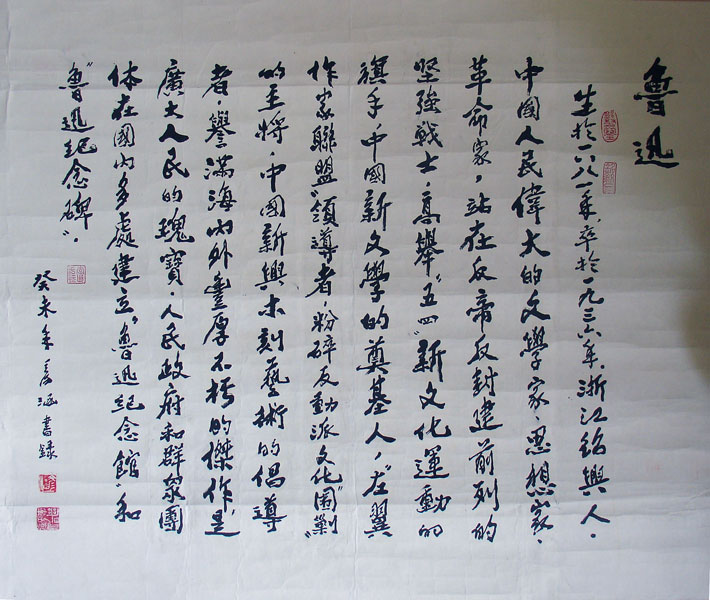 魯迅
生於一八八一年，卒於一九三六年。浙江紹興人。
中國人民偉大的文學家、思想家、
革命家，站在反帝反封建前列的
堅強戰士，高舉"五四"新文化運動的
旗手，中國新文學的奠基人，"左"翼
作家聯盟"領導者，粉碎反動派文化"圍剿"
的主將，中國新興木刻藝術的倡導
者，譽滿海内外豐厚不朽的傑作，是
廣大人民的瑰寶。人民政府和群眾團
体在國内多處建立"魯迅紀念館"、和
"魯迅紀念碑"。
癸未年 涵書錄